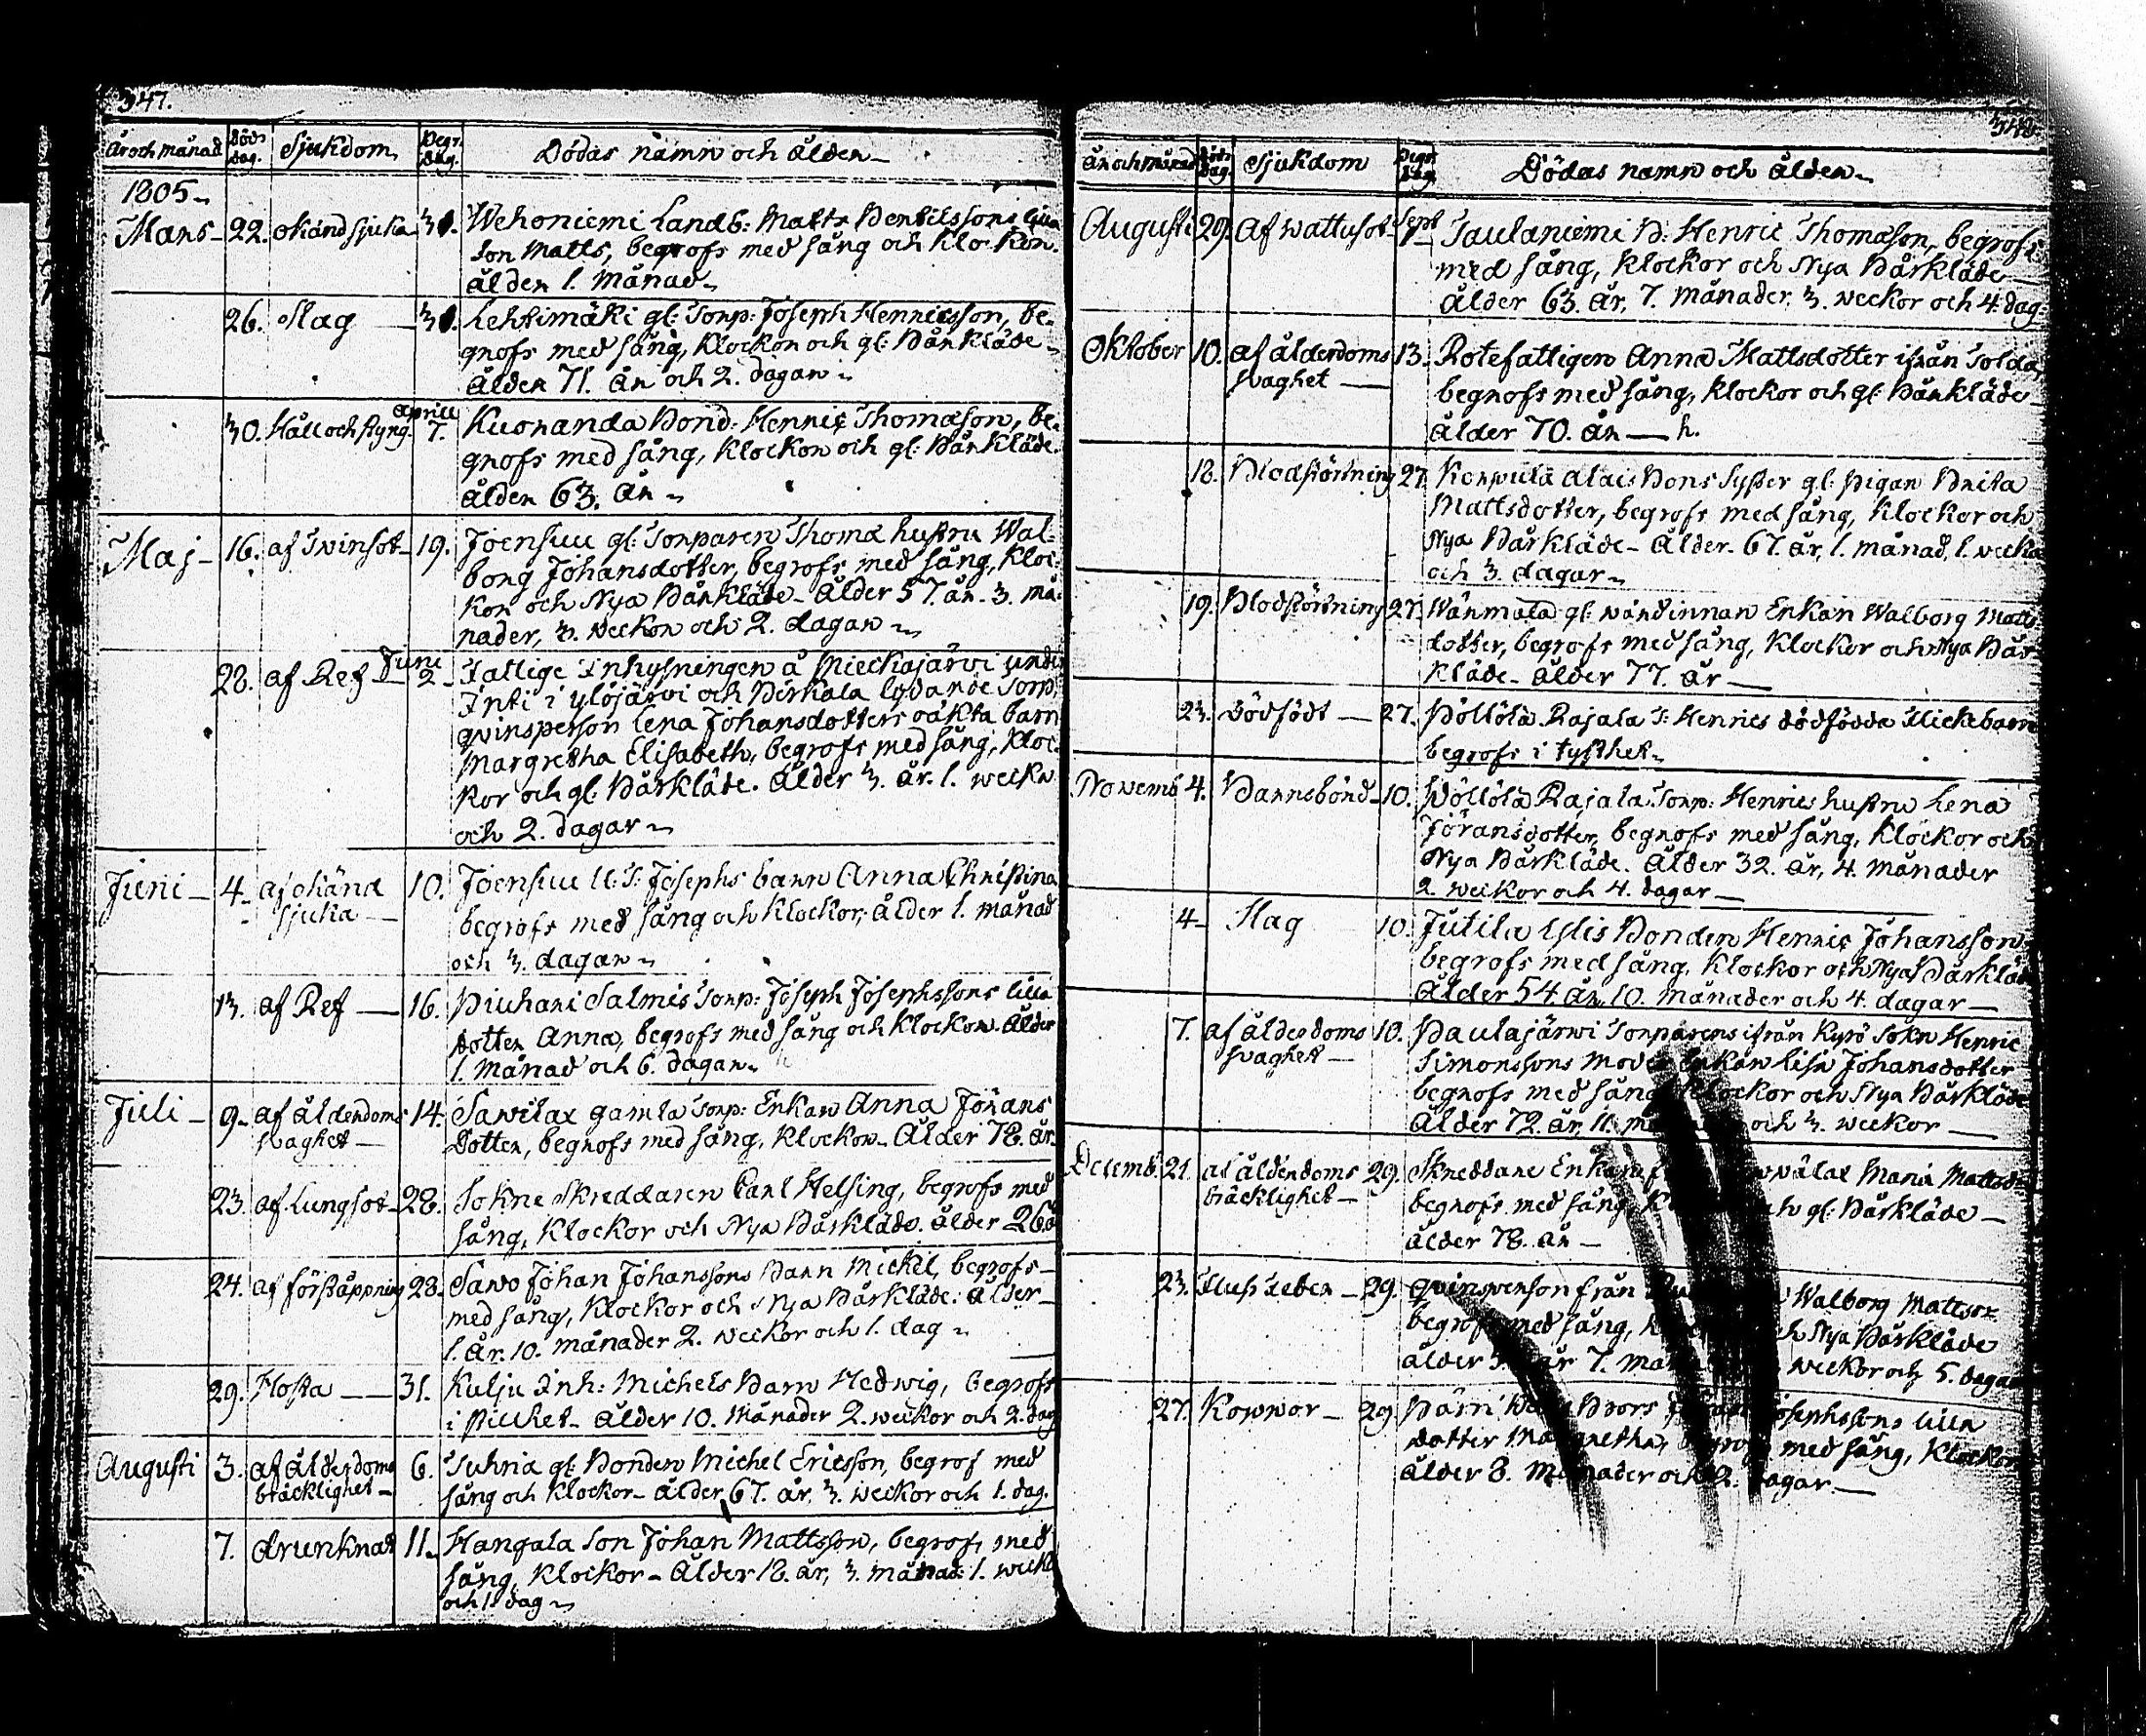 347.
År och månad Döds dag. Sjukdom Begr. dag. Dödas namn och ålder
1805
Mars 22. okänd sjuka 31. Wehoniemi Landb: Matts Bertilssons lilla
son Matts, begrofs med sång och klockor.
ålder 1. månad
26. Slag 31. Lehtimäki gl: Torp: Joseph Henricsson, be-
grofs med sång, klockor och gl: Bårkläde
ålder 71. år och 2. dagar
30. Håll och Styng. Aprill 7. Kuoranda Bond: Henric Thomasson, be-
grofs med sång, klockor och gl: Bårkläde.
ålder 63. år
Maj 16. af Twinsot 19. Joensuu gl: Torparen Thoma hustru Wal-
borg Johansdotter, begrofs med sång, kloc-
kor och Nya Bårkläde - Ålder 57. år. 3. må-
nader, 3. weckor och 2. dagar
28. af Ref Juni 2 Fattige Inhysningen å Mieckajärwi under
Inti i Ylöjärwi och Birkala lydande Torp,
qvinsperson Lena Johansdotters oäkta barn
Margretha Elisabeth, begrofs med sång, kloc-
kor och gl: Bårkläde. Ålder 3. år. 1. wecka
och 2. dagar
Juni 4. af okänd 10. Joensuu U: T: Josephs barn Anna Christina
sjuka begrofs med sång och klockor, ålder 1. månad
och 3. dagar
13. af Ref 16. Piuhari Salmis Torp: Joseph Josephssons lilla
dotter Anna, begrofs med sång och klockor. Ålder
1. månad och 6. dagar
Juli 9. af ålderdoms 14. Sawilax gamla Torp: Enkan Anna Jörans
swaghet dotter, begrofs med sång, klockor. Ålder 78. år.
23. af Lungsot 28. Sokne Skreddaren Carl Helsing, begrofs med
sång, klockor och Nya Bårkläde. ålder 26
24. af förstäppning 28. Sawo Johan Johanssons Barn Mickel, begrofs
med sång, klockor och Nya Bårkläde. ålder
1. år. 10. månader 2. weckor och 1. dag
29. Hosta 31. Kulju Inh: Michels Barn Hedwig, begrofs
i stillhet. Ålder 10. månader 2. weckor och 2. dag
Augusti 3. af ålderdoms 6. Suhria gl: Bonden Michel Ericsson, begrof med
bräcklighet sång och klockor - Ålder 67. år, 3. weckor och 1. dag.
7. drunknad 11. Hangala Son Johan Mattsson, begrofs med
sång, klockor - Ålder 18. år, 3. månad: 1. wecka
och 1 dag
348.
År och Månad Döds dag. Sjukdom Begr. dag Dödas namn och ålder
Augusti 29. af wattusot Sept 1 Saulaniemi B: Henric Thomasson, begrofs
med sång, klockor och Nya Bårkläde
Ålder 63. år, 7. Månader, 3. weckor och 4. dag:
Oktober 10. af ålderdoms 13. Rotefattigen Anna Mattsdotter ifrån
swaghet begrofs med sång, klockor och gl: Bårkläde
Ålder 70. år
18. Blodstörtning 27. Alais Bons Syster gl: Pigan Brita
Mattsdotter, begrofs med sång, klockor och
Nya Bårkläde - Ålder 67. år, 1. månad, 1. wecka
och 3. dagar
19. Blodstörtning 27. gl: wärdinnan Enkan Walborg Matts
dotter, begrofs med sång, klockor och Nya Bår-
kläde - Ålder 77. år
23. Dödfödt 27. Pöllölä Rajala T: Henrics dödfödda flickebarn
begrofs i tysthet
Novemb 4. Barnsbörd 10. Pöllölä Rajala Torp: Henrics hustru Lena
Jöransdotter, begrofs med sång, klockor och
Nya Bårkläde. Ålder 32. år, 4. månader
2. weckor och 4. dagar
4 Slag 10. Jutila Ylis Bonden Henric Johansson
begrofs med sång, klockor och Nya Bårkläde
Ålder 54 år, 10. månader och 4. dagar
7. af ålderdoms 10. Paulajärwi Torparens ifrån Kyrö Sokn Henric
swaghet Simonssons Moder Enkan Lisa Johansdotter
begrofs med sång klockor och Nya Bårkläde
Ålder 72. år, 11. och 3. weckor
Decemb. 21. af ålderdoms 29. Skreddare Enkan Maria Mattsd
bräcklighet begrofs med sång gl: Bårkläde
ålder 78. år
23. Feber 29. qvinsperson från Walborg
begrofs med sång, Nya Bårkläde
ålder år 7. weckor och 5. dagar
27. Koppor 29. Pärri Brors Josephssons lilla
dotter Margretha, begrofs med sång, klockor
ålder 8. Månader och 2. dagar